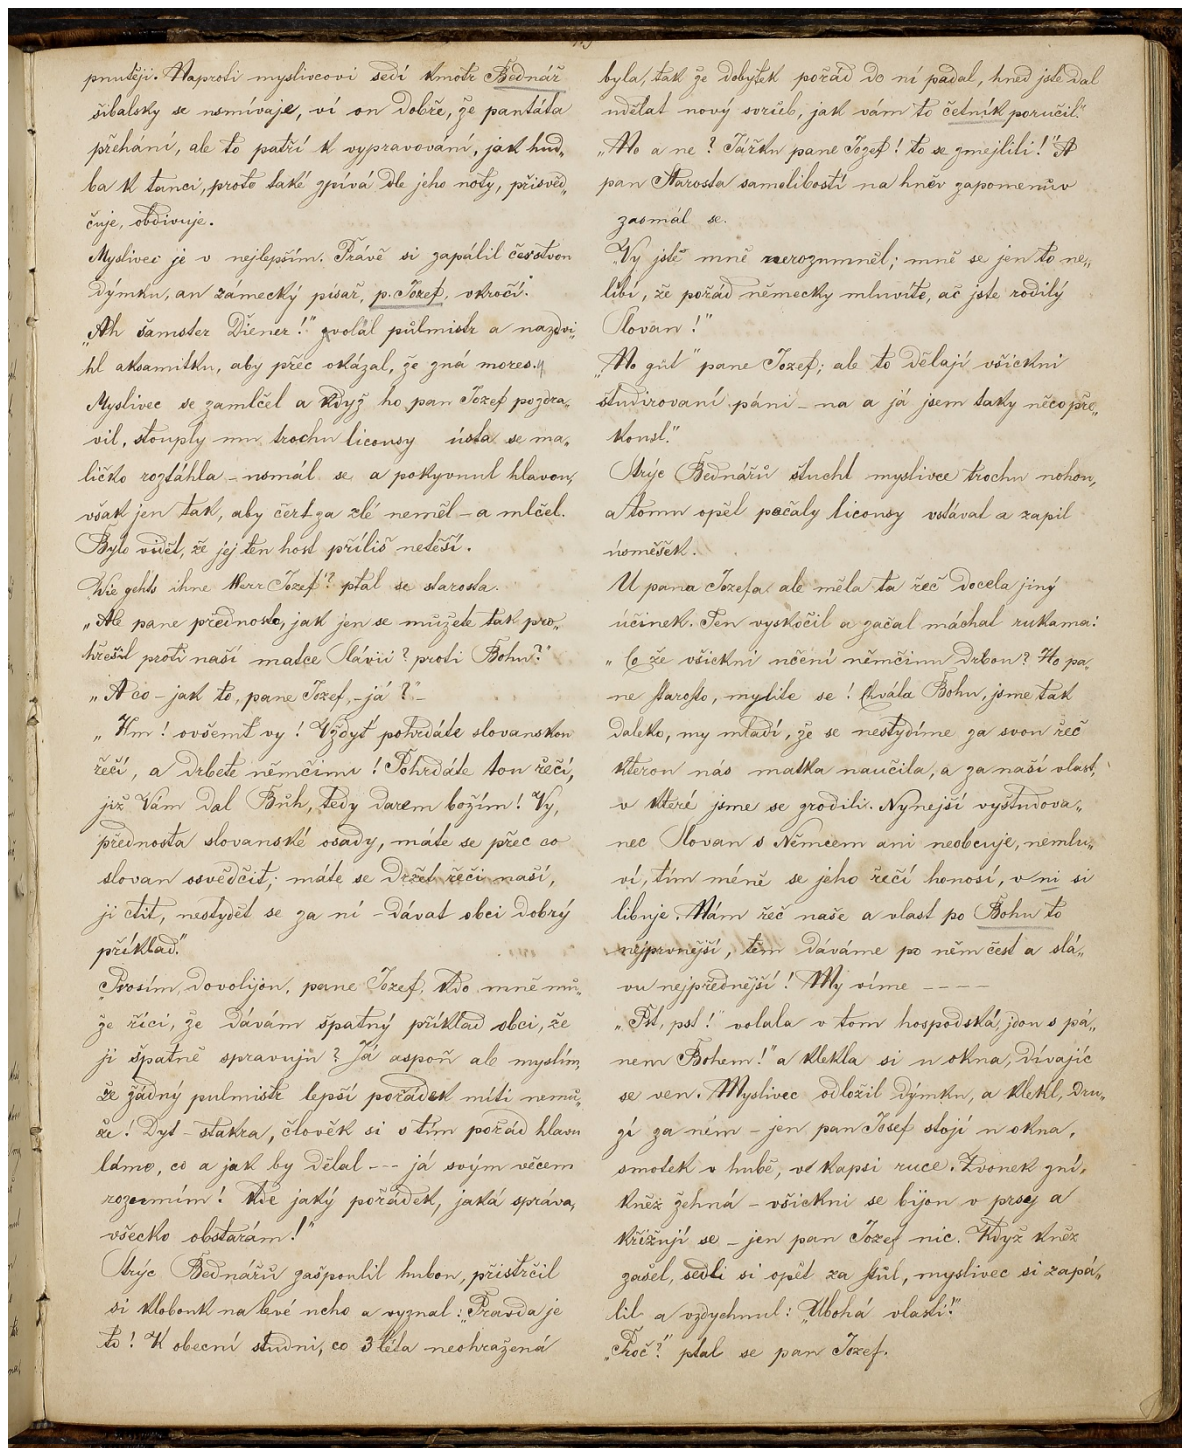 pnutěji. Naproti myslivcovi sedí kmotr Bednář
šibalsky se usmívaje, ví on dobře, že pantáta
přehání, ale to patří k vypravování, jak hud„
ba k tanci, proto také zpívá dle jeho noty, přisvěd„
čuje, obdivuje.
Myslivec je v nejlepším. Právě si zapálil čerstvou
dýmku, an zámecký písař, p. Jozef, vkročí.
„Ah šamster Diener!" zvolal půlmistr a nazdvi„
hl aksamitku, aby přec okázal, že zná mores.
Myslivec se zamlčel a když ho pan Jozef pozdra„
vil, stouply mu trochu licousy ústa se ma„
ličko roztáhla – usmál se a pokyvnul hlavou,
však jen tak, aby čert ga zlé neměl – a mlčel.
Bylo vidět, že jej ten host příliš netěší.
Wie gehts ihne Herr Jozef"? ptal se starosta.
„Ale pane přednosto, jak jen se můžete tak pro„
hřešit proti naší matce Slávii? proti Bohu?"
„A co – jak to, pane Jozef, – já?" –
„Hm! ovšemť vy! Vždyť potvrdáte slovanskou
řečí, a drbete němčinu! Pohrdáte tou řečí,
již Vám dal Bůh, tedy darem božím! Vy,
přednosta slovanské osady, máte se přec co
slovan osvědčit; máte se držet řeči naší,
ji ctit, nestydět se za ní – dávat obci dobrý
příklad."
„Prosím, dovolijou, pane Jozef, kdo mně mů„
že říci, že dávám špatný příklad obci, že
ji špatně spravuju? Já aspoň ale myslím,
že žádný pulmistr lepší pořádek míti nemů„
že! Dyt – stakra, člověk si s tím pořád hlavu
láme, co a jak by dělal --- já svým věcem
rozumím! Kde jaký pořádek, jaká správa,
všecko obstarám!"
Strýc Bednářů zašpoulil hubou, přistrčil
si klobouk na levé ucho a vyznal: „Pravda je
to! K obecní studni, co 3 léta neohražená
byla, tak že dobytek pořád do ní padal, hned jste dal
udělat nový svrub, jak vám to četník poručil."
„No a ne? Jářku pane Jozef! to se zmejlili!" A
pan Starosta samolibostí na hněv zapomenův
zasmál se.
Vy jstě mně nerozumněl; mně se jen to ne„
líbí, že pořád německy mluvíte, ač jste rodilý
Slovan!"
„No gút" pane Jozef; ale to dělají všickni
študirovaní páni – na a já jsem taky něco pře„
kousl."
Strýc Bednářů štuchl myslivce trochu nohou,
a tomu opět počaly licousy vstávat a zapil
úsměšek.
U pana Jozefa ale měla ta řeč docela jiný
účinek. Ten vyskočil a začal máchat rukama:
„Co že všickni učení němčinu drbou? Ho pa„
ne starosto, mylíte se! Chvála Bohu, jsme tak
daleko, my mladí, že se nestydíme za svou řeč
kterou nás matka naučila, a za naší vlast,
v které jsme se zrodili. Nynejší vyštudova„
nec Slovan s Němcem ani neobcuje, nemlu„
ví, tím méně se jeho řečí honosí, v ni si
libuje. Nám řeč naše a vlast po Bohu to
nejprvnější, těm dáváme po něm čest a slá„
vu nejpřednější! My víme ----
„Pst, pst!" volala v tom hospodská, jdou s pá„
nem Bohem!" a klekla si u okna, dívajíc
se ven. Myslivec odložil dýmku, a klekl, dru„
zí za ním – jen pan Josef stojí u okna,
smotek v hubě, ve kapsi ruce. Zvonek zní,
kněz žehná – všickni se bijou v prsy a
křižují se – jen pan Jozef nic. Když kněz
zašel, sedli si opět za stůl, myslivec si zapá„
lil a vzdychnul: „Ubohá vlasti!"
„Proč?" ptal se pan Jozef.